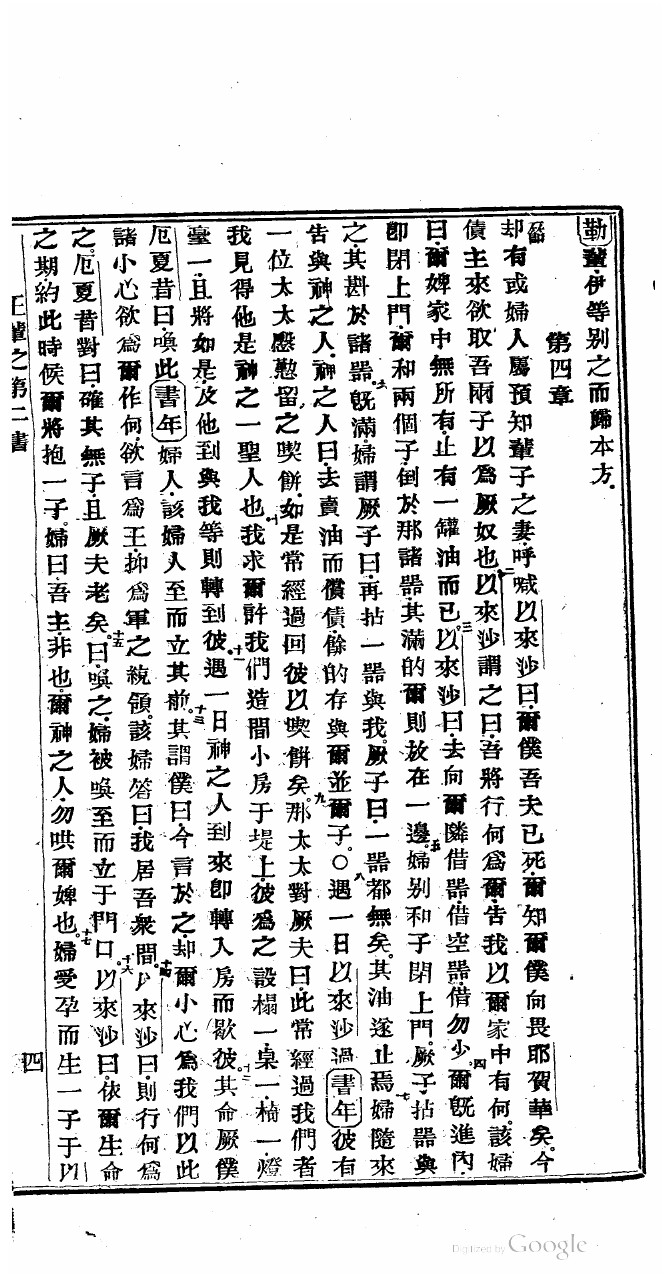 勒輩伊等别之而歸本方
第四章
却有或婦人屬預知輩子之妻呼喊以來沙曰爾僕吾夫已死爾知爾僕向畏耶賀華矣今
債主來欲取吾兩子以爲厥奴也二以來沙謂之曰吾將行何爲爾告我以爾家中有何該婦
曰爾婢家中無所有止有一罐油而已三以來沙曰去向爾隣借器借空器借勿少四爾旣進內
卽閉上門爾和兩個子倒於那諸器其滿的爾則放在一邊五婦别和子閉上門厥子拈器與
之其斟於諸器六旣滿婦謂厥子曰再拈一器與我厥子曰一器都無矣其油遂止焉七婦隨來
告與神之人神之人曰去賣油而償債餘的存與爾並爾子○八遇一日以來沙過書年彼有
一位太太慇懃留之喫餅如是常經過回彼以喫餅矣九那太太對厥夫曰此常經過我們者
我見得他是神之一聖人也十我求爾許我們造間小房于堤上彼爲之設榻一桌一椅一燈
臺一且將如是及他到與我等則轉到彼十一遇一日神之人到來卽轉入房而歇彼十二其命厥僕
厄夏昔曰喚此書年婦人該婦人至而立其前十三其謂僕曰今言於之却爾小心爲我們以此
諸小心欲爲爾作何欲言爲王抑爲軍之統領該婦答曰我居吾衆間十四以來沙曰則行何爲
之厄夏昔對曰確其無子且厥夫老矣十五曰喚之婦被喚至而立于門口十六以來沙曰依爾生命
之期約此時候爾將抱一子婦曰吾主非也爾神之人勿哄爾婢也十七婦受孕而生一子于以
王輩之第二書
四
Digitized by Google